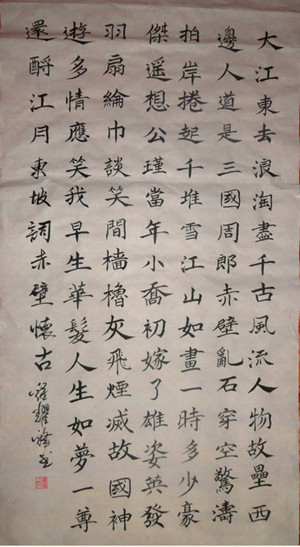 大江東去浪淘盡千古風流人物故壘西
邊人道是三國周郎赤壁亂石穿空驚濤
拍岸捲起千堆雪江山如畫一時多少豪
傑遥想公瑾當年小喬初嫁了雄姿英發
羽扇綸巾談笑間檣櫓灰飛煙滅故國神
遊多情應笑我早生華髮人生如夢一尊
還酹江月東坡詞赤壁懷古